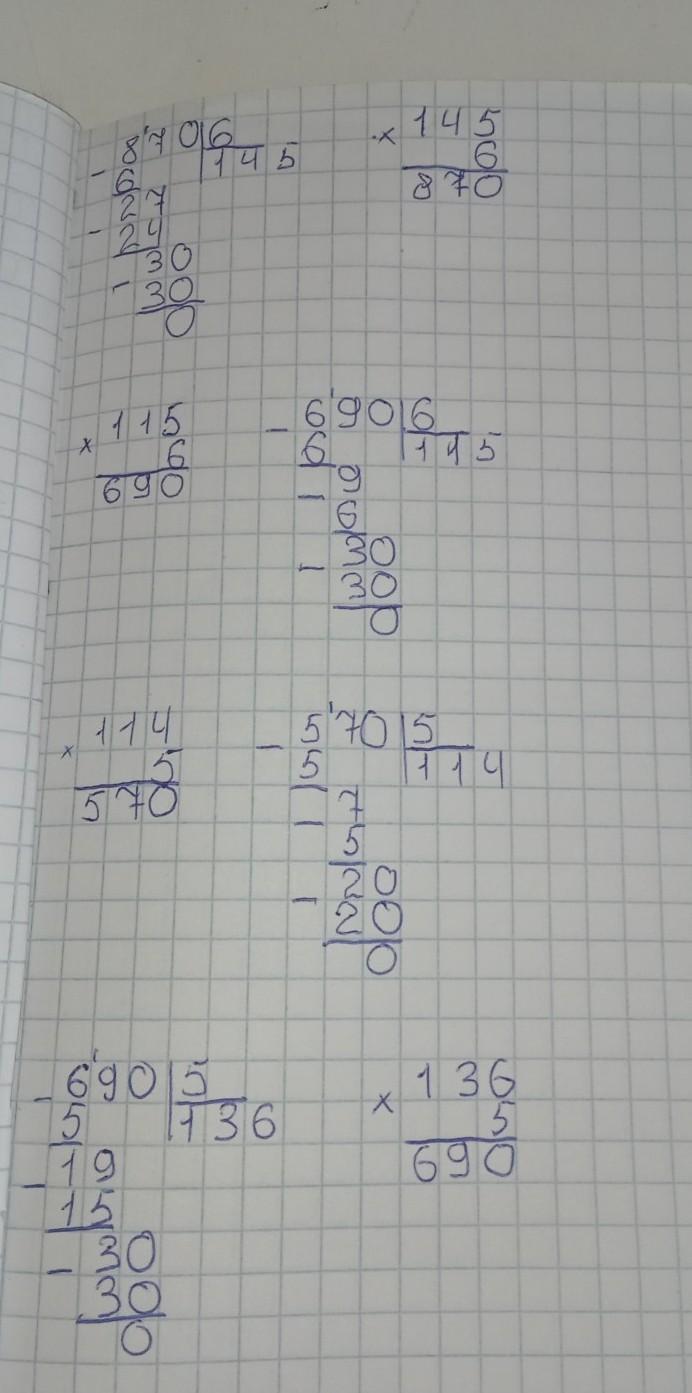 - 8'70|6
6 |145
- 27
24
- 30
30
0
× 145
6
870
× 115
6
690
- 6'90|6
6 |115
- 9
6
- 30
30
0
× 114
5
570
- 5'70|5
5 |114
- 7
5
- 20
20
0
- 6'90|5
5 |136
- 19
15
- 30
30
0
× 136
5
690